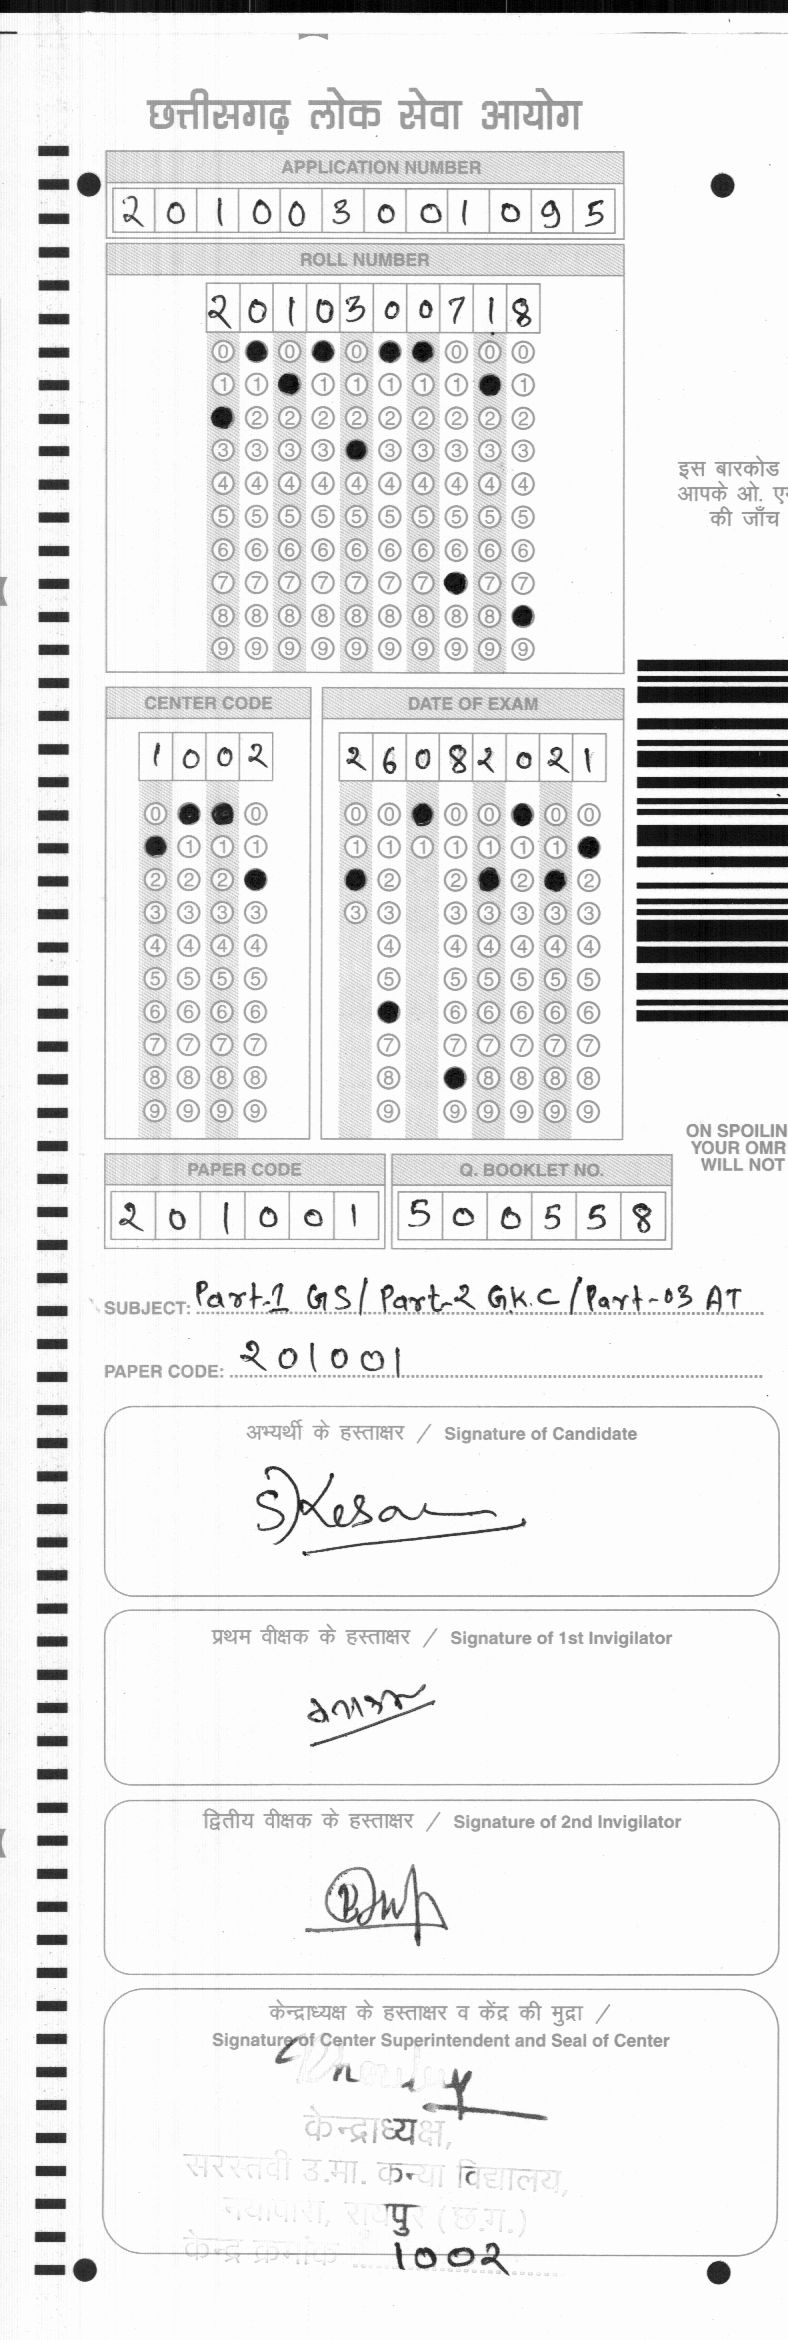 छत्तीसगढ़ लोक सेवा आयोग
APPLICATION NUMBER
2 0 1 0 0 3 0 0 1 0 9 5
ROLL NUMBER
2 0 1 0 3 0 0 7 1 8
0 0 0 0 0 0
1 1 1 1 1 1 1 1
2 2 2 2 2 2 2 2 2
3 3 3 3 3 3 3 3 3
4 4 4 4 4 4 4 4 4 4
5 5 5 5 5 5 5 5 5 5
6 6 6 6 6 6 6 6 6 6
7 7 7 7 7 7 7 7 7
8 8 8 8 8 8 8 8 8
9 9 9 9 9 9 9 9 9 9
इस बारकोड
आपके ओ.
की जाँच
CENTER CODE
1 0 0 2
0 0
1 1 1
2 2 2
3 3 3 3
4 4 4 4
5 5 5 5
6 6 6 6
7 7 7 7
8 8 8 8
9 9 9 9
DATE OF EXAM
2 6 0 8 2 0 2 1
0 0 0 0 0 0
1 1 1 1 1 1 1
2 2 2 2
3 3 3 3 3 3 3
4 4 4 4 4 4
5 5 5 5 5 5
6 6 6 6 6
7 7 7 7 7 7
8 8 8 8 8
9 9 9 9 9 9
ON SPOILIN
YOUR OMR
WILL NOT
PAPER CODE
2 0 1 0 0 1
Q. BOOKLET NO.
5 0 0 5 5 8
SUBJECT: Part-1 GS/ Part-2 G.K.C /Part-03 AT
PAPER CODE: 201001
अभ्यर्थी के हस्ताक्षर / Signature of Candidate
प्रथम वीक्षक के हस्ताक्षर / Signature of 1st Invigilator
द्वितीय वीक्षक के हस्ताक्षर / Signature of 2nd Invigilator
केन्द्राध्यक्ष के हस्ताक्षर व केंद्र की मुद्रा /
Signature of Center Superintendent and Seal of Center
केन्द्राध्यक्ष,
सरस्वती उ.मा. कन्या विद्यालय,
नयापारा, रायपुर (छ.ग.)
केन्द्र क्रमांक 1002